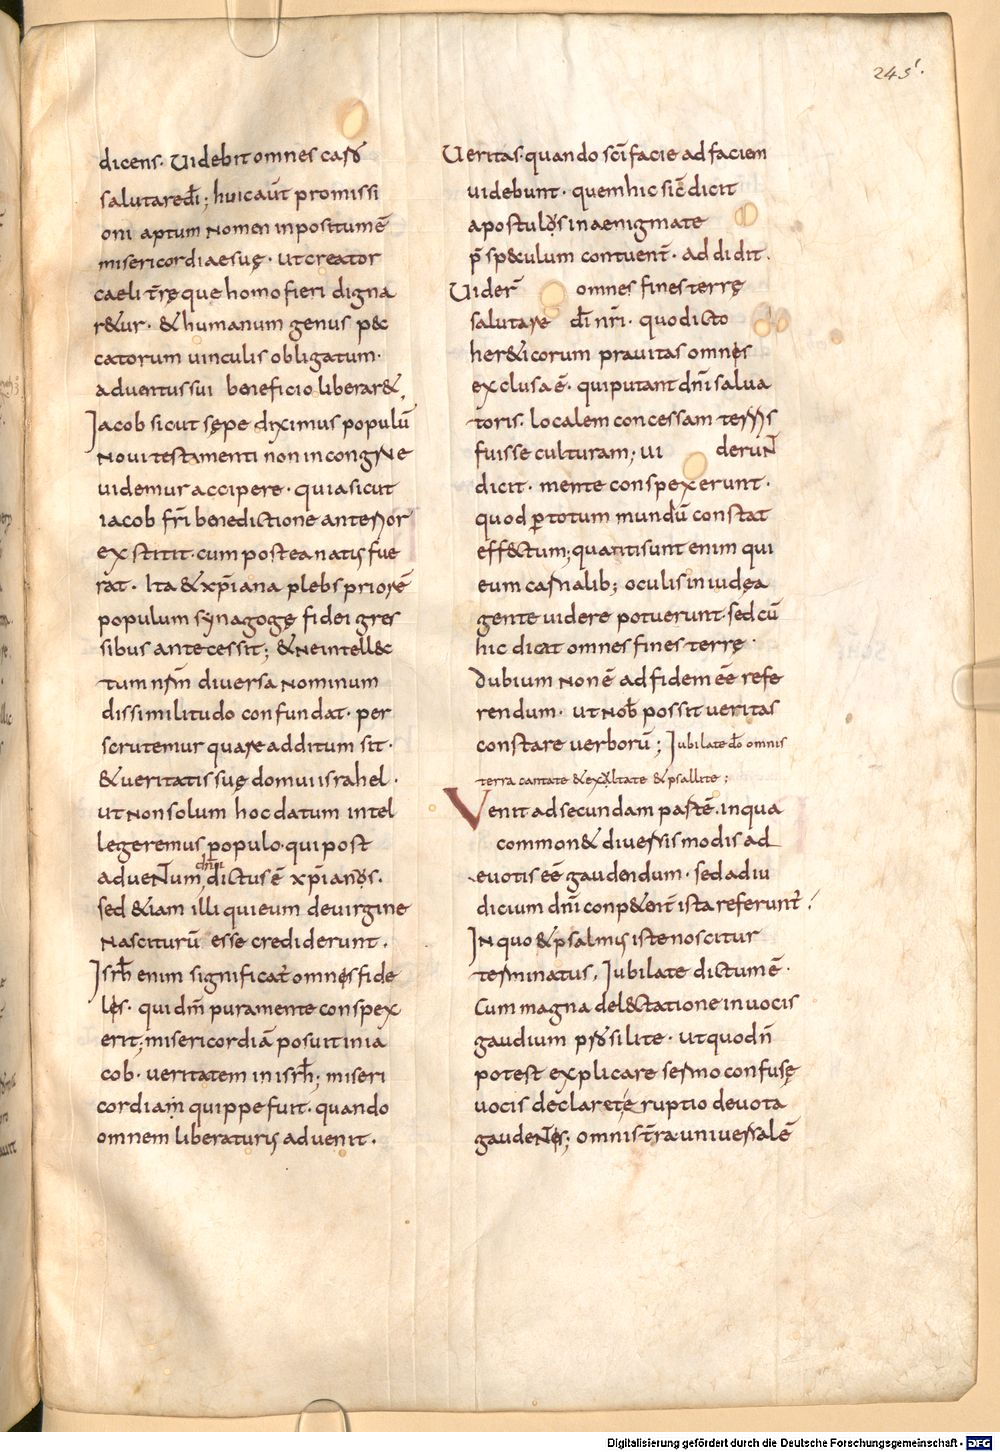 243'.
dicens. Uidebit omnes caro
salutare dī; huic aūt promissi
oni aptum nomen inpositum ē
misericordiae suę. ut creator
caeli t̄ręque homo fieri digna
r&ur. & humanum genus pec
catorum uinculis obligatum.
aduentus sui beneficio liberar&.
Jacob sicut sępe diximus populū
noui testamenti non incongrue
uidemur accipere. quia sicut
iacob fr̄i benedictione anterior
exstitit. cum postea natus fue
rat. Ita & xp̄iana plebs priorē
populum synagogę fidei gres
sibus antecessit; & ne intellec
tum nr̄m diversa nominum
dissimilitudo confundat. per
scrutemur quare additum sit.
& ueritatis suę domui israhel.
ut non solum hoc datum intel
legeremus populo. qui post
aduentum dn̄i dictus ē xp̄ianus.
sed &iam illi qui eum de uirgine
nasciturū esse crediderunt.
Jsrh̄ enim significat omnes fide
les. qui dm̄ pura mente conspex
erit; misericordiā posuit in ia
cob. ueritatem in isrh̄; miseri
cordiam quippe fuit. quando
omnem liberaturus aduenit.
Ueritas. quando sc̄i facie ad faciem
uidebunt. quem hic sic dicit
apostulus in aenigmate
p̄ speculum contuent̄. addidit.
Uider̄ omnes fines terrę
salutare dī nr̄i. quo dicto
her&icorum prauitas omnis
exclusa ē. qui putant dn̄i salua
toris. localem concessam terris
fuisse culturam; ui derunt
dicit. mente conspexerunt.
quod p totum mundū constat
eff&ctum; quanti sunt enim qui
eum carnalib; oculis in iudęa
gente uidere potuerunt. sed cū
hic dicat omnes fines terrę.
Dubium non ē ad fidem ēe refe
rendum. ut nob̄ possit ueritas
constare uerborū; Jubilate dō omnis
terra cantate & exultate & psallite;
Venit ad secundam partē. in qua
common& diuersis modis ad
euotis ēe gaudendum. sed adiu
dicium dn̄i conp&ent̄ ista referunt̄.
In quo & psalmus iste noscitur
terminatus. Jubilate dictum ē.
Cum magna del&ctatione in uocis
gaudium prosilite. ut quod n̄
potest explicare sermo confusę
uocis declar& eruptio deuota
gaudentis; omnis t̄ra uniuersalē
Digitalisierung gefördert durch die Deutsche Forschungsgemeinschaft - DFG